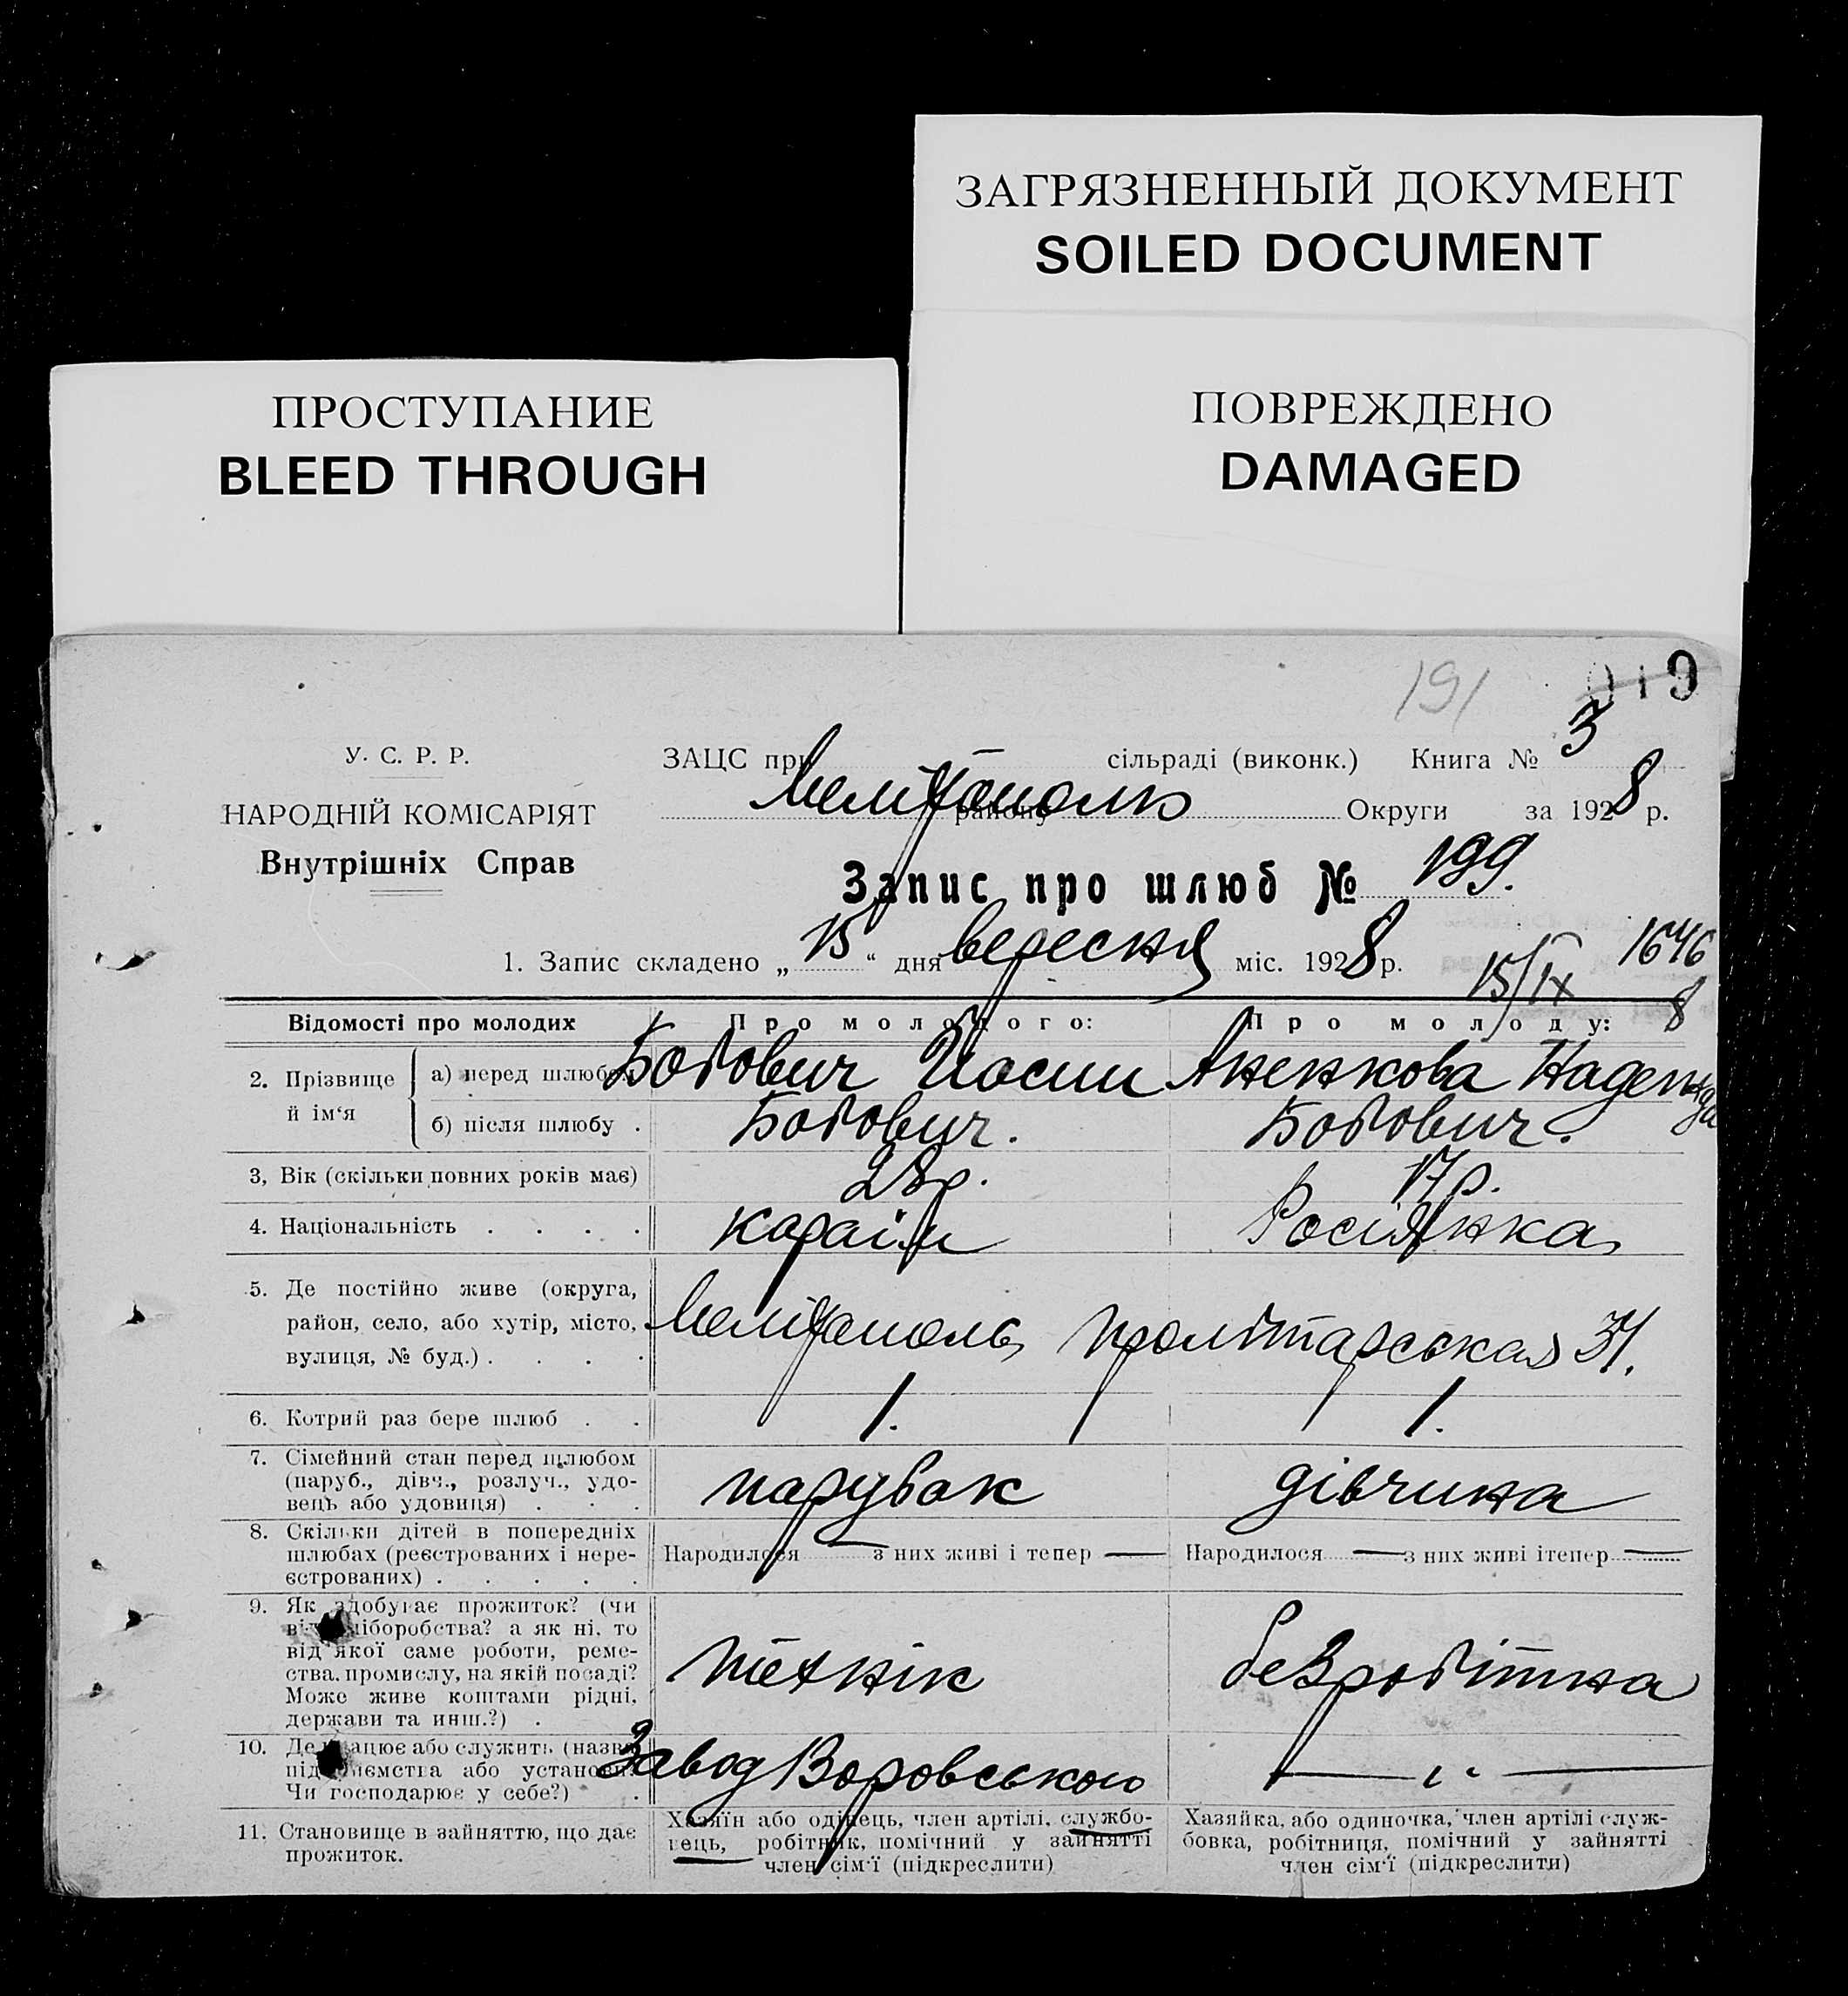 ЗАГРЯЗНЕННЫЙ ДОКУМЕНТ
SOILED DOCUMENT
ПРОСТУПАНИЕ
BLEED THROUGH
ПОВРЕЖДЕНО
DAMAGED
191
9
У. С. Р. Р.
НАРОДНІЙ КОМІСАРІЯТ
Внутрішніх Справ
ЗАЦС при сільраді (виконк.) Книга № 3
району Округи за 1928 р.
Запис про шлюб № 199.
1. Запис складено „15“ дня вересня міс. 1928 р.
15/IX 1646
8
Відомості про молодих
Про молодого:
Про молоду:
2. Прізвище й ім‘я
а) перед шлюбом
Боbович Иосип
Аненкова Надежда
б) після шлюбу .
Боbович.
Боbович.
3, Вік (скільки повних років має)
28р.
17р.
4. Національність . . . .
караїм
Росіянка
5. Де постійно живе (округа,
район, село, або хутір, місто,
вулиця, № буд.) . . . .
Мелітополь, 31.
6. Котрий раз бере шлюб . .
1.
1.
7. Сімейний стан перед шлюбом
(паруб., дівч., розлуч., удо-
вець або удовиця) . . .
парубок
дівчина
8. Скільки дітей в попередніх
шлюбах (реєстрованих і нере-
єстрованих) . . . . .
Народилося — з них живі і тепер —
Народилося — з них живі ітепер —
9. Як здобуває прожиток? (чи
від хліборобства? а як ні, то
від якої саме роботи, реме-
ства, промислу, на якій посаді?
Може живе коштами рідні,
держави та инш.?) .
технік
безробітна
10. Де працює або служить (назва
підприємства або установи?
Чи господарює у себе?) .
Завод Воровського
— „ —
11. Становище в зайняттю, що дає
прожиток.
Хазяїн або одинець, член артілі, службо-
вець, робітник, помічний у зайнятті
член сім‘ї (підкреслити)
Хазяйка, або одиночка, член артілі служ-
бовка, робітниця, помічний у зайнятті
член сім‘ї (підкреслити)